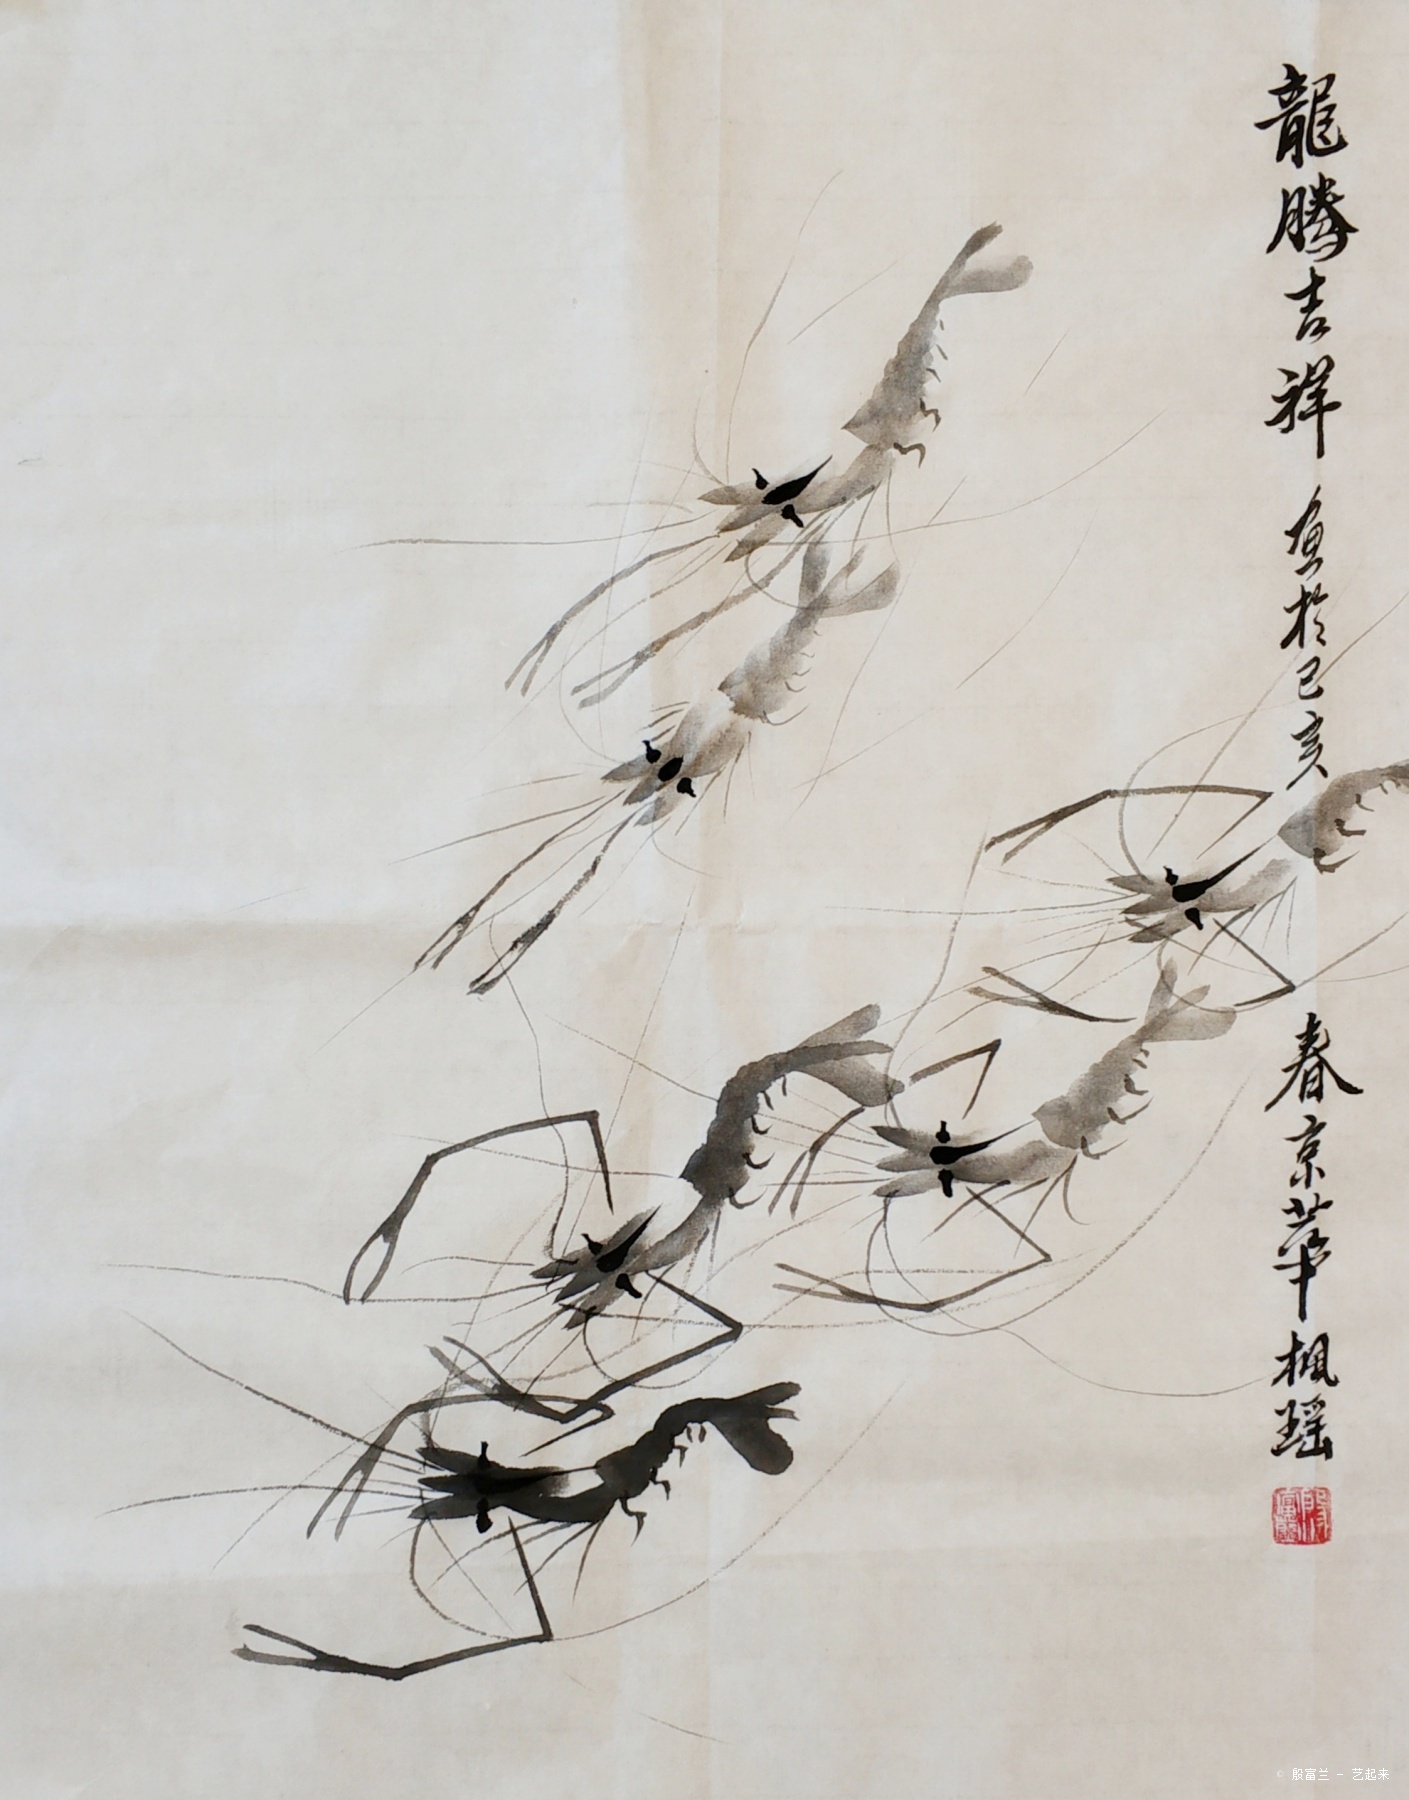 龍騰吉祥 魚於己亥 春京華楓瑶
殷富蘭
© 殷富兰 - 艺起来